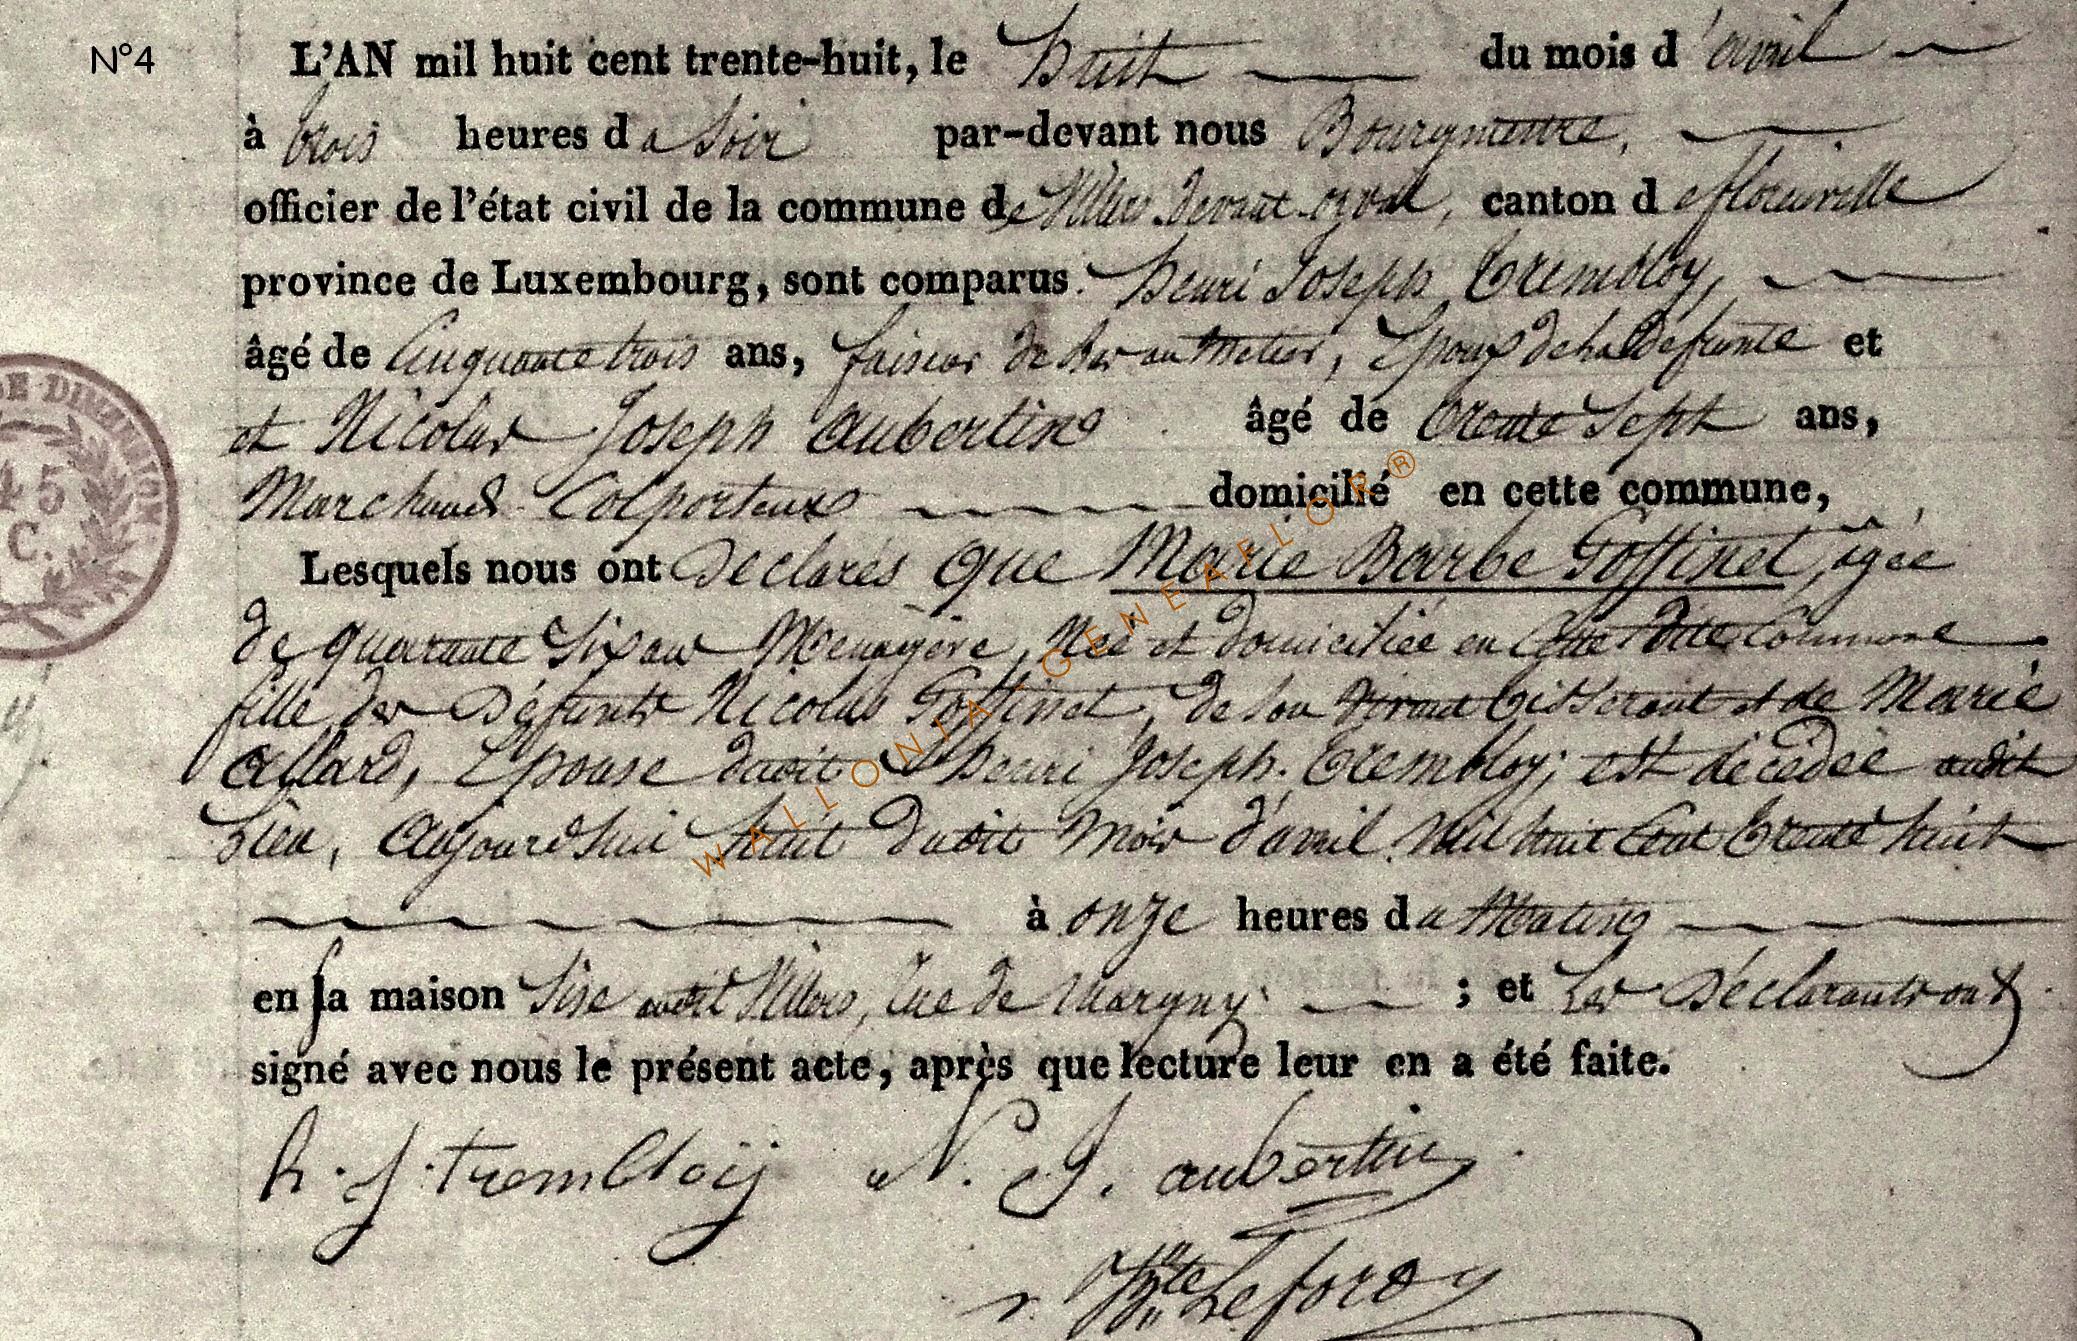 N°4
L'AN mil huit cent trente-huit, le huit du mois d'avril
à trois heures du Soir par-devant nous Bourgmestre,
officier de l'état civil de la commune de Villers devant orval, canton de florenville
province de Luxembourg, sont comparus henri Joseph Trembloy,
âgé de Cinquante trois ans, faiseur de bas au Metier, Epoux de la Defunte et
et Nicolas Joseph aubertin âgé de trente Sept ans,
Marchand Colporteur domicilié en cette commune,
Lesquels nous ont Declarés que Marie Barbe Goffinet, agée
de quarante Six ans Menagère, Née et domiciliée en Cette dite Commune
fille des Défunts Nicolas Goffinet, de son vivant tisserant et de Marie
allard, Epouse dudit henri Joseph Trembloy; est décédée audit
lieu, aujourdhui huit dudit mois d'avril mil huit Cent trente huit
à onze heures du Matin
en sa maison Sise audit Villers, rue de Margny ; et les Déclarants ont
signé avec nous le présent acte, après que lecture leur en a été faite.
h. j. trembloij N. J. aubertin
Leforoy
DIMENSION
45
C.
WALLONIA GENEAFLOR®